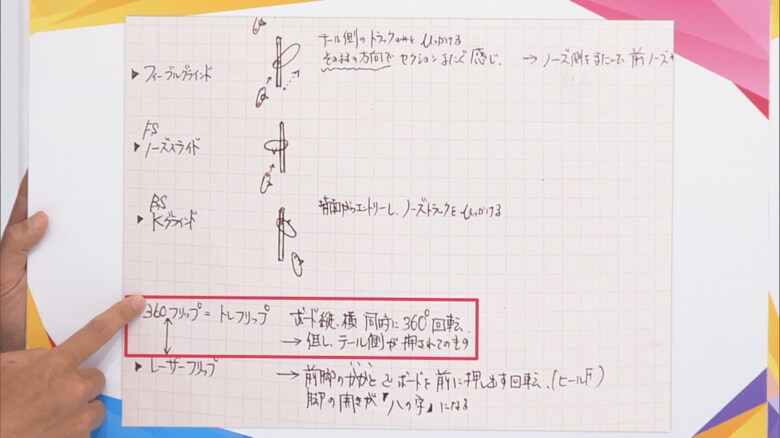 テール側のトラックを ひっかける
▶ フィーブルグラインド
そのままの方向で セクションまたぐ感じ. → ノーズ側をまたいで、前ノーズ
FS
▶ ノーズスライド
BS
▶ Kグラインド
背面からエントリーし、ノーズトラックを ひっかける
360フリップ = トレフリップ ボード縦、横 同時に 360°回転.
→ 但し、テール側が 押されてのもの
▶ レーザーフリップ → 前脚のかかと でボードを前に押し出す回転、(ヒールF)
脚の開きが 「ハの字」になる